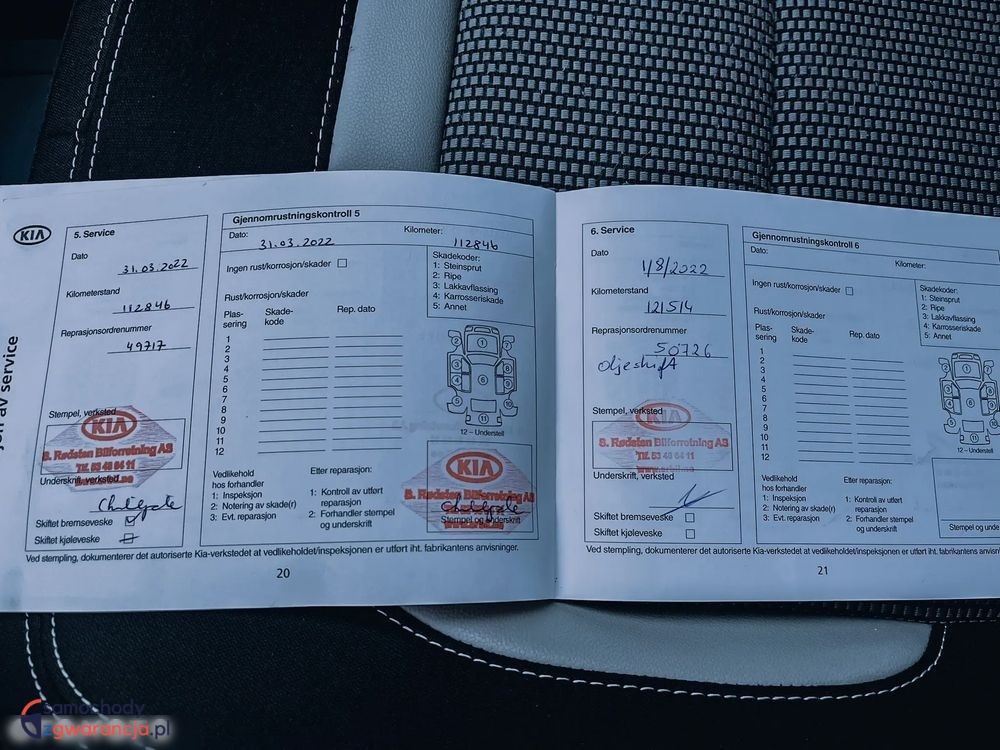 KIA
5. Service
Dato
31.03.2022
Kilometerstand
112846
Reprasjonsordrenummer
49717
Stempel, verksted
KIA
S. Rødsten Bilforretning AS
Tlf. 53 48 64 11
Underskrift, verksted
Skiftet bremseveske
Skiftet kjøleveske
av service
Gjennomrustningskontroll 5
Dato: 31.03.2022 Kilometer: 112846
Ingen rust/korrosjon/skader
Skadekoder:
1: Steinsprut
2: Ripe
3: Lakkavflassing
4: Karrosseriskade
5: Annet
Rust/korrosjon/skader
Plas-sering Skade-kode Rep. dato
1
2
3
4
5
6
7
8
9
10
11
12
1
2
7
3
8
4
6
9
5
10
11
12 – Understell
Vedlikehold
hos forhandler
1: Inspeksjon
2: Notering av skade(r)
3: Evt. reparasjon
Etter reparasjon:
1: Kontroll av utført
reparasjon
2: Forhandler stempel
og underskrift
KIA
S. Rødsten Bilforretning AS
Stempel og underskrift
Ved stempling, dokumenterer det autoriserte Kia-verkstedet at vedlikeholdet/inspeksjonen er utført iht. fabrikantens anvisninger.
20
6. Service
Dato
1/8/2022
Kilometerstand
121514
Reprasjonsordrenummer
50726
Oljeskift
Stempel, verksted
KIA
S. Rødsten Bilforretning AS
Tlf. 53 48 64 11
Underskrift, verksted
Skiftet bremseveske
Skiftet kjøleveske
Gjennomrustningskontroll 6
Dato:
Kilometer:
Ingen rust/korrosjon/skader
Skadekoder:
1: Steinsprut
2: Ripe
3: Lakkavflassing
4: Karrosseriskade
5: Annet
Rust/korrosjon/skader
Plas-sering Skade-kode Rep. dato
1
2
3
4
5
6
7
8
9
10
11
12
1
2
7
3
8
4
6
9
5
10
11
12 – Understell
Vedlikehold
hos forhandler
1: Inspeksjon
2: Notering av skade(r)
3: Evt. reparasjon
Etter reparasjon:
1: Kontroll av utført
reparasjon
2: Forhandler stempel
og underskrift
Stempel og unde
Ved stempling, dokumenterer det autoriserte Kia-verkstedet at vedlikeholdet/inspeksjonen er utført iht. fabrikantens anvisn
21
samochody
zgwarancja.pl